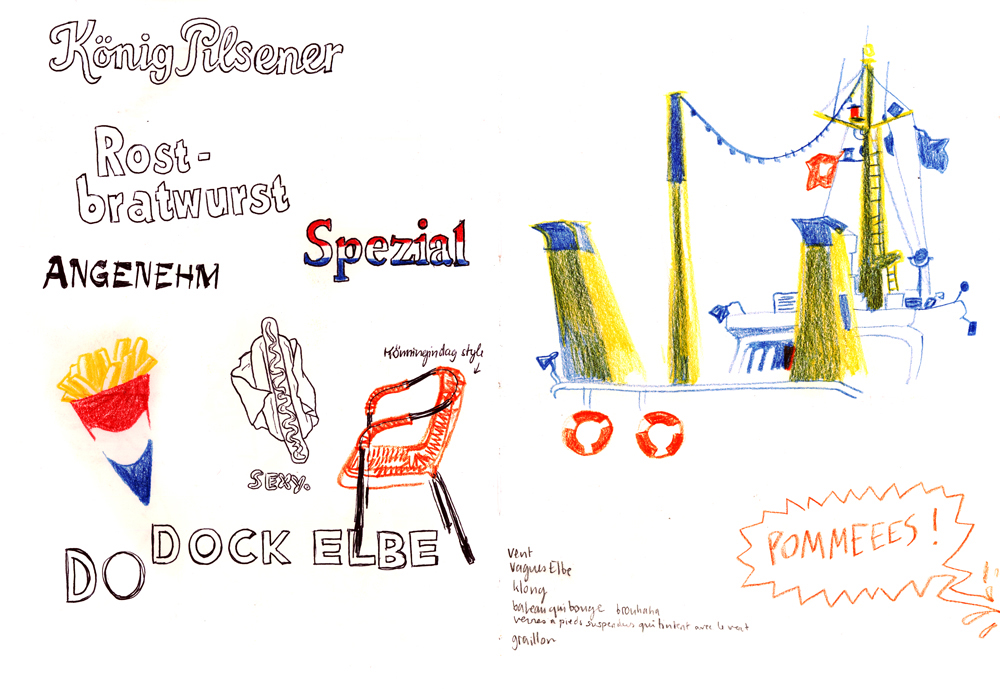 König Pilsener
Rost-
bratwurst
Spezial
ANGENEHM
Könningindag style
SEXY.
DO DOCK ELBE
POMMEEES !
vent
vagues Elbe
klong
bateau qui bouge brouhaha
verres à pieds suspendus qui tintent avec le vent
graillon